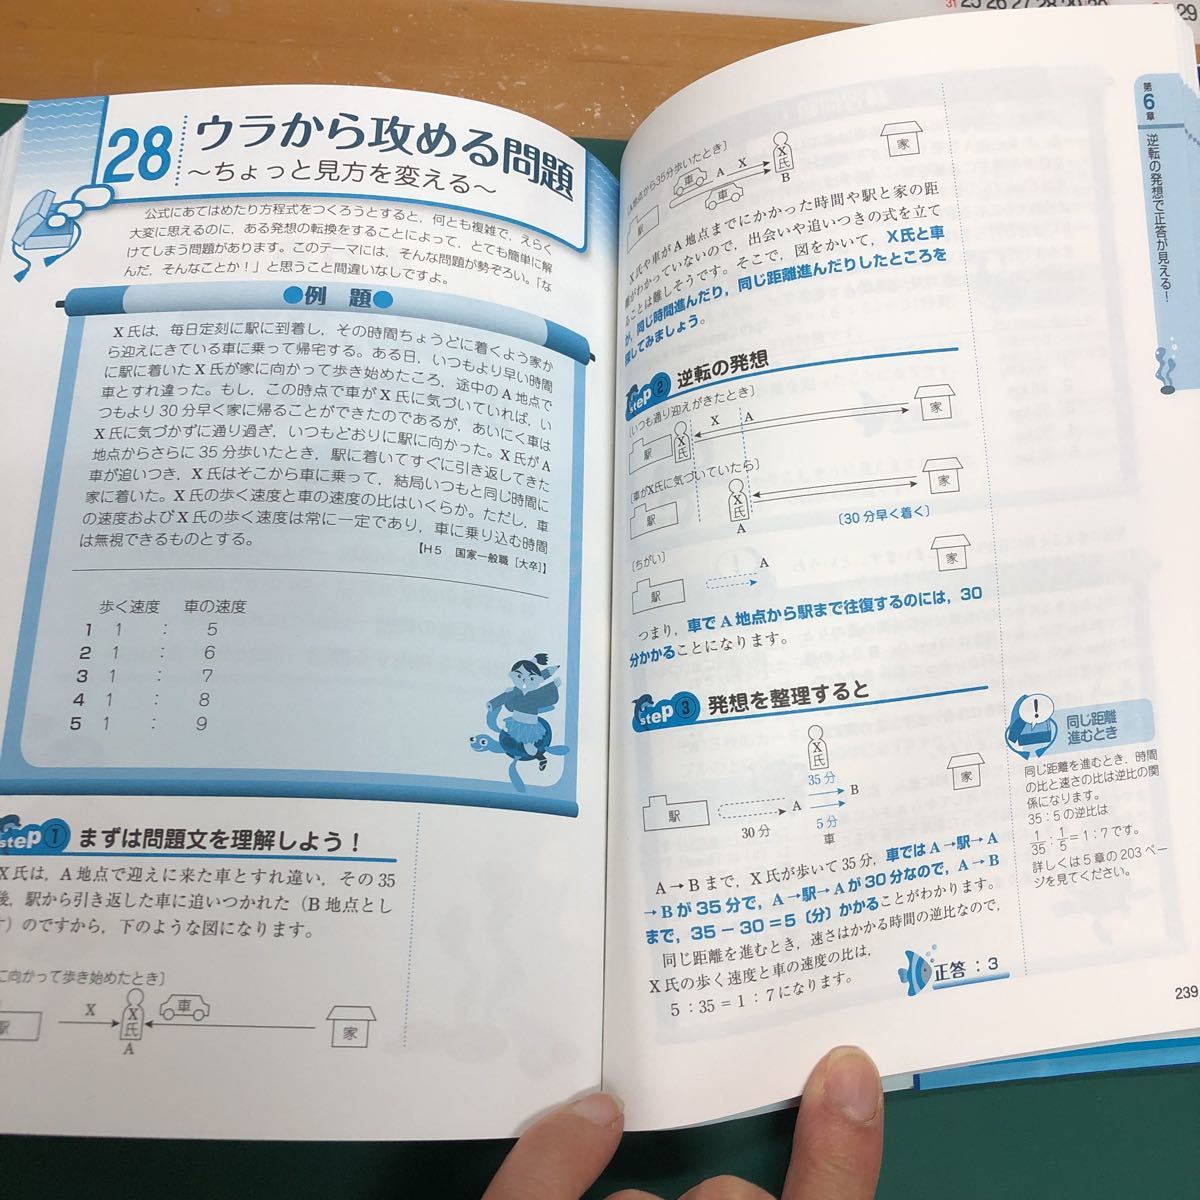 28
ウラから攻める問題
～ちょっと見方を変える～
公式にあてはめたり方程式をつくろうとすると，何とも複雑で，えらく
大変に思えるのに，ある発想の転換をすることによって，とても簡単に解
けてしまう問題があります。このテーマには，そんな問題が勢ぞろい。「な
んだ，そんなことか！」と思うこと間違いなしですよ。
●例 題●
X氏は，毎日定刻に駅に到着し，その時間ちょうどに着くよう家か
ら迎えにきている車に乗って帰宅する。ある日，いつもより早い時間
に駅に着いたX氏が家に向かって歩き始めたころ，途中のA地点で
車とすれ違った。もし，この時点で車がX氏に気づいていれば，い
つもより30分早く家に帰ることができたのであるが，あいにく車は
X氏に気づかずに通り過ぎ，いつもどおりに駅に向かった。X氏がA
地点からさらに35分歩いたとき，駅に着いてすぐに引き返してきた
車が追いつき，X氏はそこから車に乗って，結局いつもと同じ時間に
家に着いた。X氏の歩く速度と車の速度の比はいくらか。ただし，車
の速度およびX氏の歩く速度は常に一定であり，車に乗り込む時間
は無視できるものとする。
【H5 国家一般職［大卒］】
歩く速度 車の速度
1 1 : 5
2 1 : 6
3 1 : 7
4 1 : 8
5 1 : 9
step ① まずは問題文を理解しよう！
X氏は，A地点で迎えに来た車とすれ違い，その35
後，駅から引き返した車に追いつかれた（B地点とし
す）のですから，下のような図になります。
に向かって歩き始めたとき〕
駅
X
X氏
A
車
家
第6章 逆転の発想で正答が見える！
〔A地点から35分歩いたとき〕
駅
車
A
X
車
X氏
B
家
X氏や車がA地点までにかかった時間や駅と家の距
離がわかっていないので，出会いや追いつきの式を立て
ることは難しそうです。そこで，図をかいて，X氏と車
が，同じ時間進んだり，同じ距離進んだりしたところを
探してみましょう。
step ② 逆転の発想
〔いつも通り迎えがきたとき〕
駅
X氏
X
A
家
〔車がX氏に気づいていたら〕
駅
X氏
A
家
〔30分早く着く〕
〔ちがい〕
駅
A
家
つまり，車でA地点から駅まで往復するのには，30
分かかることになります。
step ③ 発想を整理すると
X氏
35分
駅
30分
A
B
5分
車
家
A→Bまで，X氏が歩いて35分，車ではA→駅→A
→Bが35分で，A→駅→Aが30分なので，A→B
まで，35－30＝5〔分〕かかることがわかります。
同じ距離を進むとき，速さはかかる時間の逆比なので，
X氏の歩く速度と車の速度の比は，
5：35＝1：7になります。
正答：3
同じ距離
進むとき
同じ距離を進むとき，時間
の比と速さの比は逆比の関
係になります。
35：5の逆比は
1/35：1/5＝1：7です。
詳しくは5章の203ペー
ジを見てください。
239
31 25 26 27 28 29 30
29